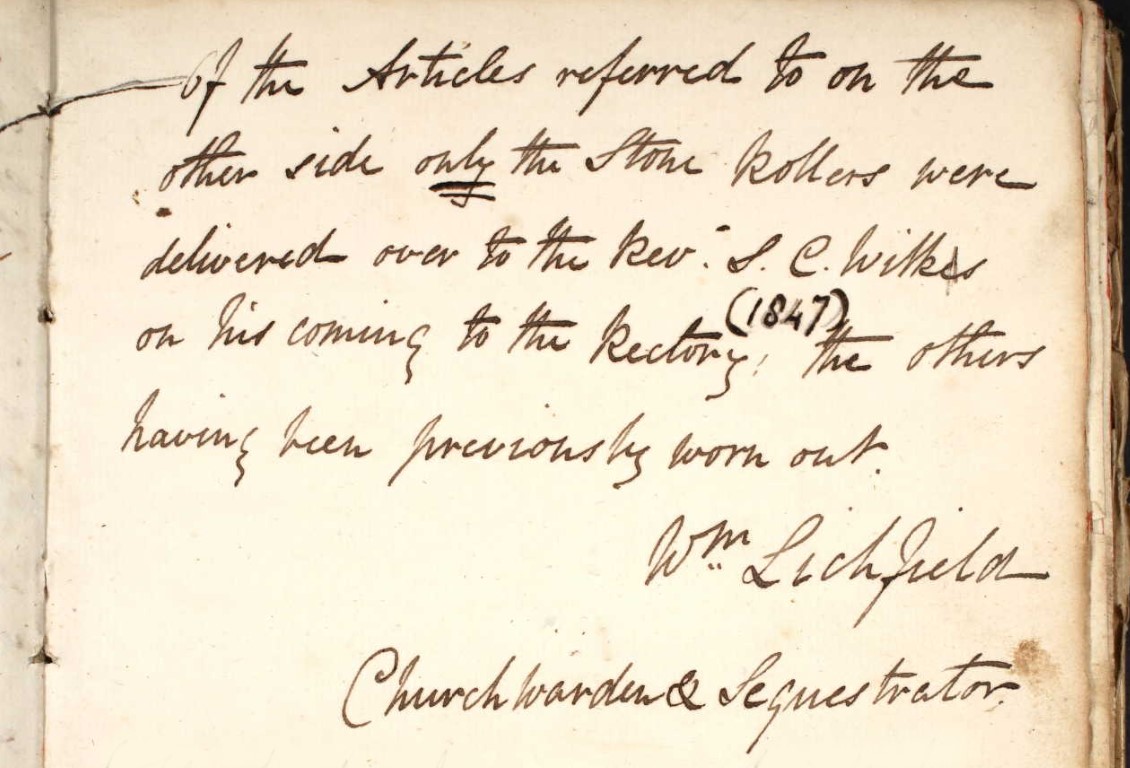 Of the Articles referred to on the
other side only the Stone Rollers were
delivered over to the Rev. S. C. Wilks
on his coming to the Rectory, (1847) the others
having been previously worn out.
Wm Lichfield
Churchwarden & Sequestrator.